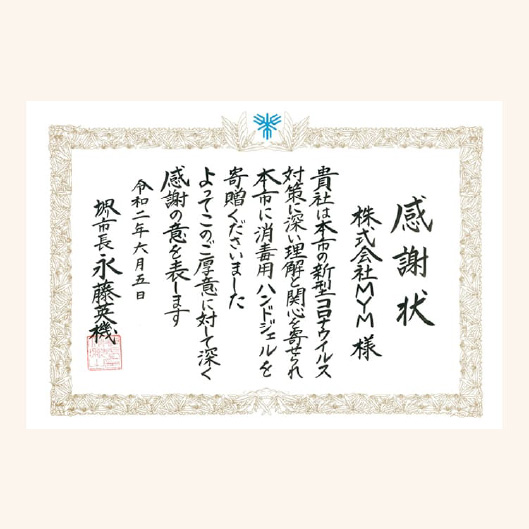 感謝状
株式会社MYM様
貴社は本市の新型コロナウイルス
対策に深い理解と関心を寄せられ
本市に消毒用ハンドジェルを
寄贈くださいました
よってこのご厚意に対して深く
感謝の意を表します
令和二年六月五日
堺市長 永藤英機